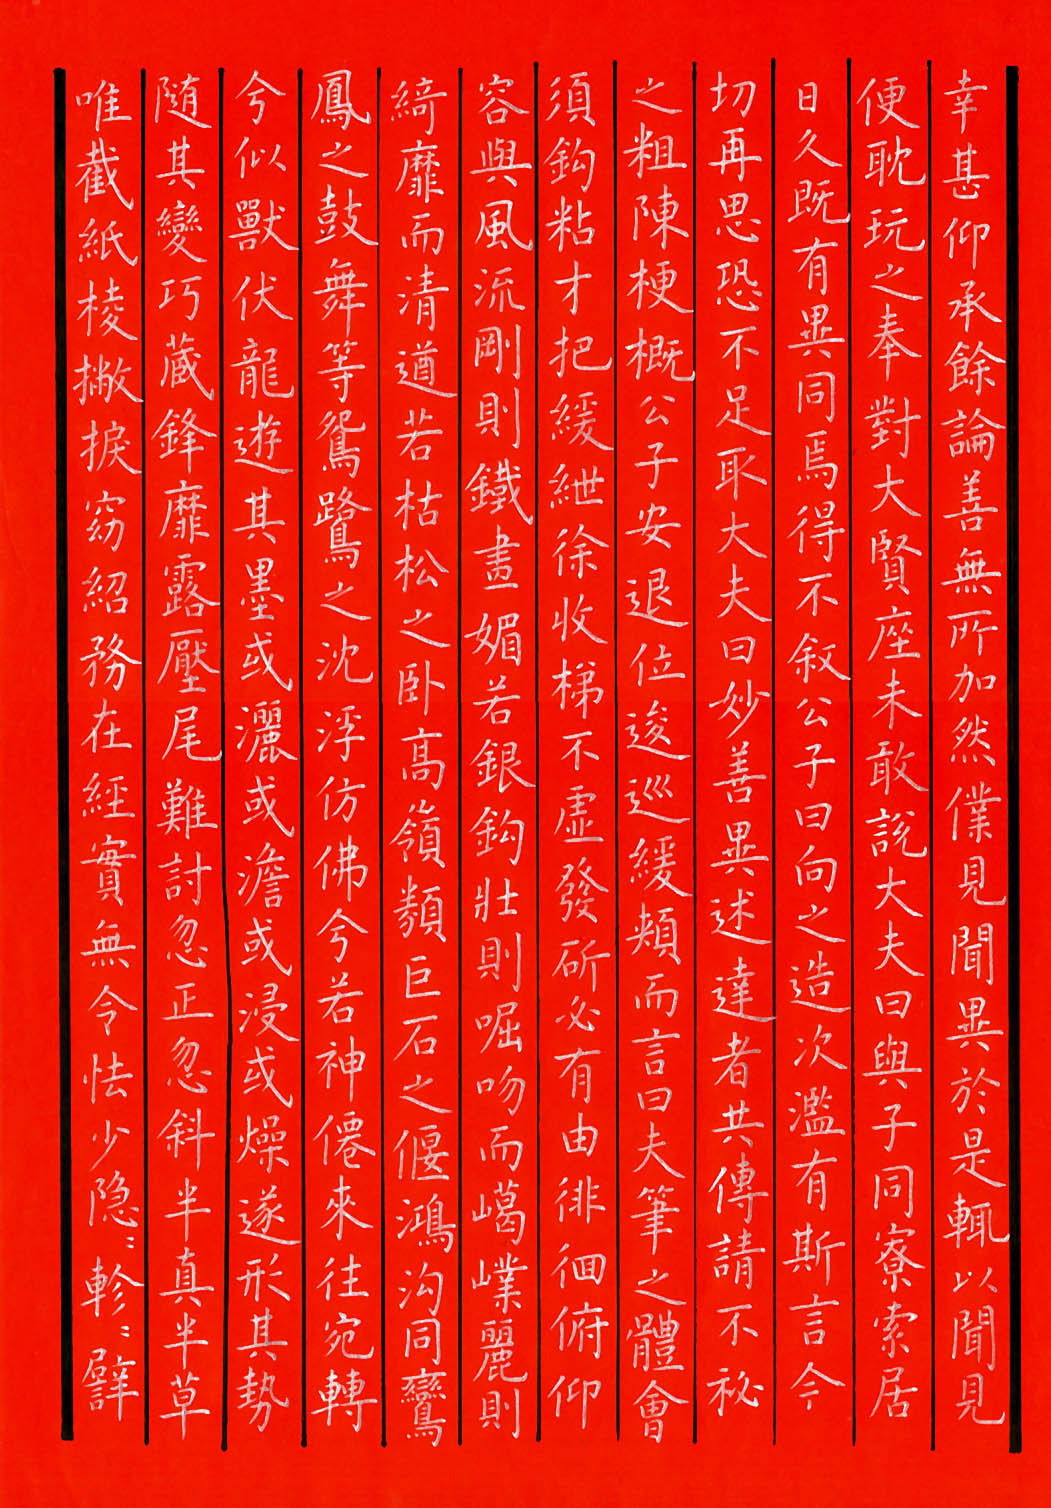 幸甚仰承餘論善無所加然僕見聞異於是輒以聞見
便耽玩之奉對大賢座未敢說大夫曰與子同寮索居
日久既有異同焉得不敘公子曰向之造次濫有斯言今
切再思恐不足取大夫曰妙善異述達者共傳請不祕
之粗陳梗概公子安退位逡巡緩頰而言曰夫筆之體會
須鈎粘才把緩紲徐收梯不虛發斫必有由徘徊俯仰
容與風流剛則鐵畫媚若銀鈎壯則崛吻而嶱嶫麗則
綺靡而清遒若枯松之卧高嶺類巨石之偃鴻沟同鸞
鳳之鼓舞等鴛鷺之沈浮仿佛兮若神僊來往宛轉
兮似獸伏龍遊其墨或灑或澹或浸或燥遂形其勢
随其變巧藏鋒靡露壓尾難討忽正忽斜半真半草
唯截紙棱撇捩窈紹務在經實無令怯少隐〻軫〻譬